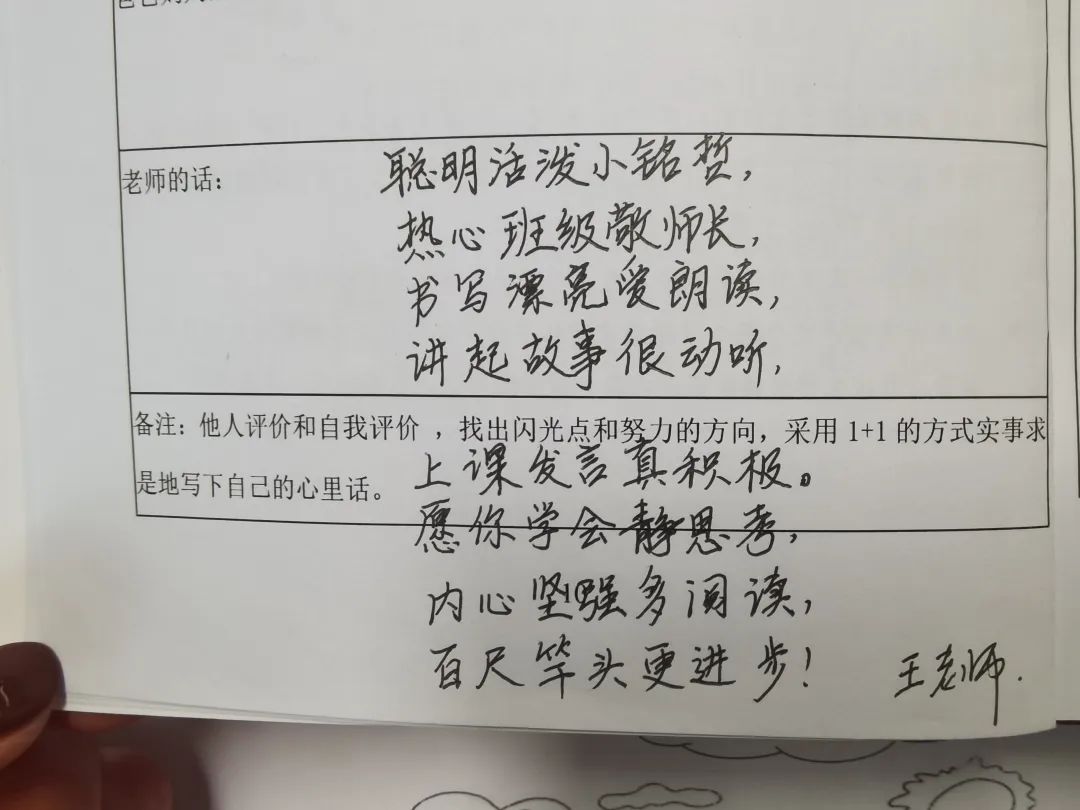 老师的话：
聪明活泼小铭哲，
热心班级敬师长，
书写漂亮爱朗读，
讲起故事很动听，
备注：他人评价和自我评价，找出闪光点和努力的方向，采用 1+1 的方式实事求
是地写下自己的心里话。
上课发言真积极。
愿你学会静思考，
内心坚强多阅读，
百尺竿头更进步！
王老师.